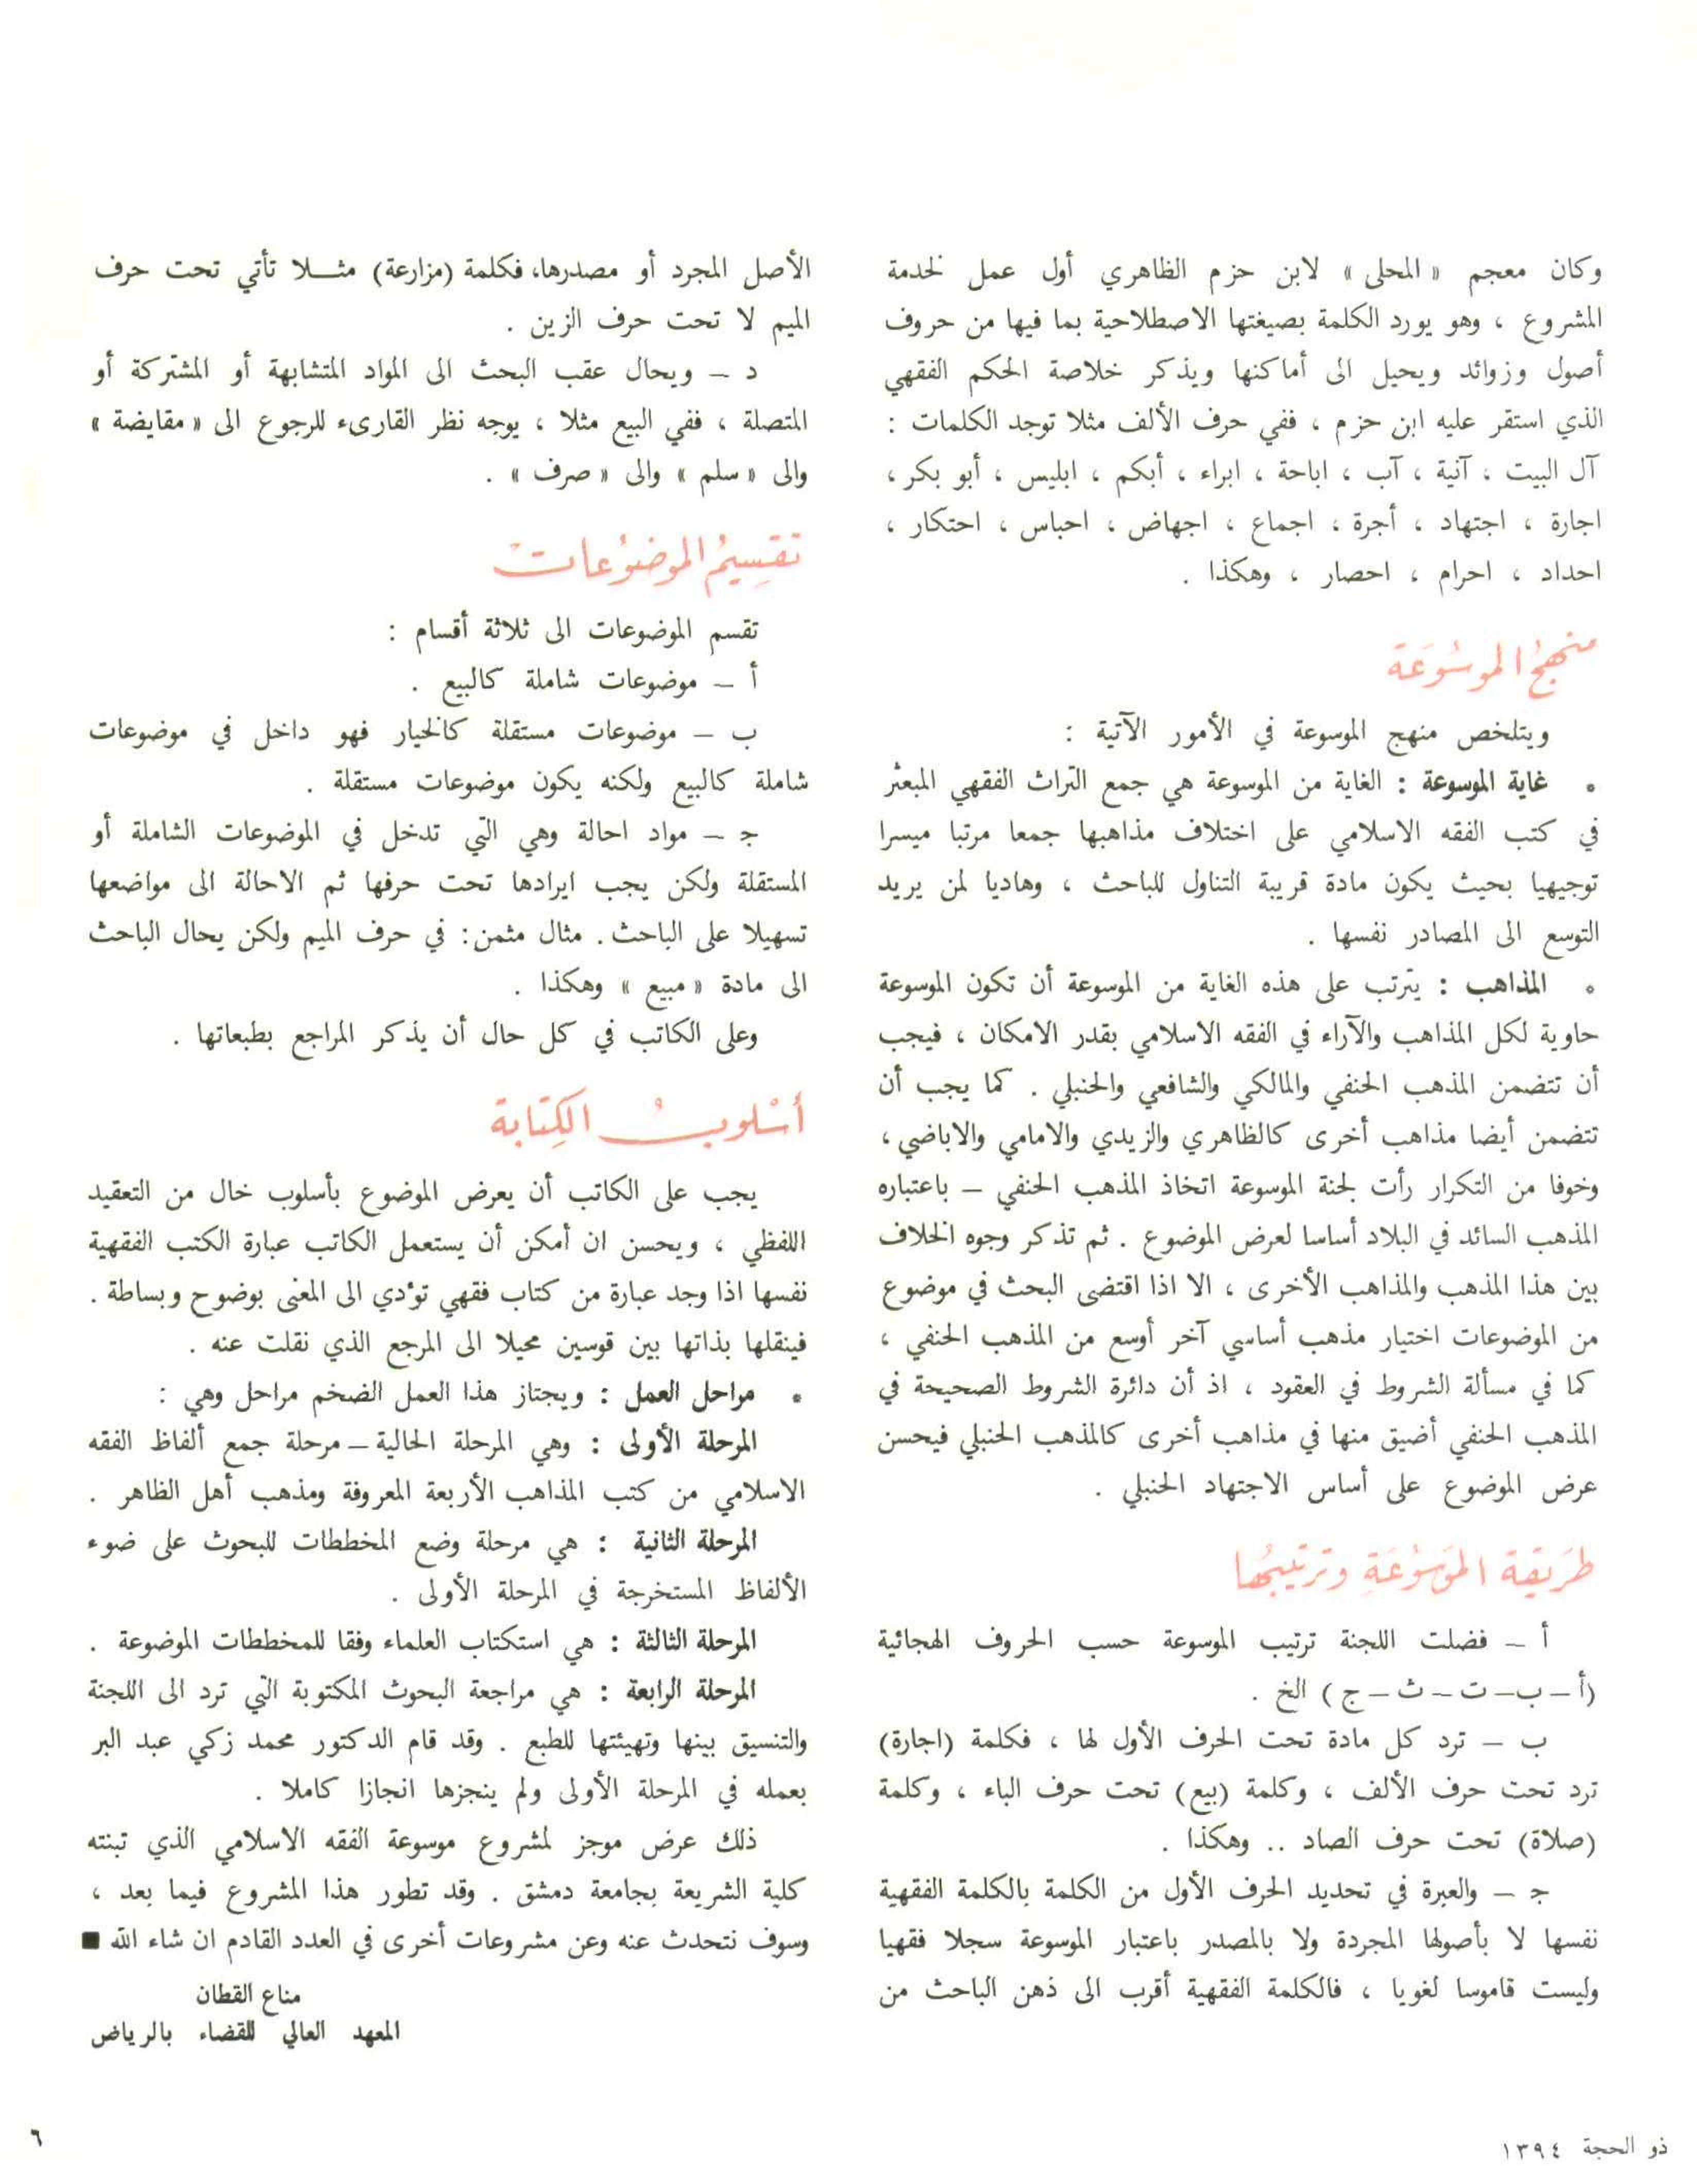 وكان معجم « المحلى » لابن حزم الظاهري أول عمل لخدمة
المشروع ، وهو يورد الكلمة بصيغتها الاصطلاحية بما فيها من حروف
أصول وزوائد ويحيل الى أماكنها ويذكر خلاصة الحكم الفقهي
الذي استقر عليه ابن حزم ، ففي حرف الألف مثلا توجد الكلمات :
آل البيت ، آنية ، آب ، اباحة ، ابراء ، أبكم ، ابليس ، أبو بكر ،
اجارة ، اجتهاد ، أجرة ، اجماع ، اجهاض ، احباس ، احتكار ،
احداد ، احرام ، احصار ، وهكذا .
منهج الموسُوعَة
ويتلخص منهج الموسوعة في الأمور الآتية :
• غاية الموسوعة : الغاية من الموسوعة هي جمع التراث الفقهي المبعثر
في كتب الفقه الاسلامي على اختلاف مذاهبها جمعا مرتبا ميسرا
توجيهيا بحيث يكون مادة قريبة التناول للباحث ، وهاديا لمن يريد
التوسع الى المصادر نفسها .
• المذاهب : يترتب على هذه الغاية من الموسوعة أن تكون الموسوعة
حاوية لكل المذاهب والآراء في الفقه الاسلامي بقدر الامكان ، فيجب
أن تتضمن المذهب الحنفي والمالكي والشافعي والحنبلي . كما يجب أن
تتضمن أيضا مذاهب أخرى كالظاهري والزيدي والامامي والاباضي ،
وخوفا من التكرار رأت لجنة الموسوعة اتخاذ المذهب الحنفي – باعتباره
المذهب السائد في البلاد أساسا لعرض الموضوع . ثم تذكر وجوه الخلاف
بين هذا المذهب والمذاهب الأخرى ، الا اذا اقتضى البحث في موضوع
من الموضوعات اختيار مذهب أساسي آخر أوسع من المذهب الحنفي ،
كما في مسألة الشروط في العقود ، اذ أن دائرة الشروط الصحيحة في
المذهب الحنفي أضيق منها في مذاهب أخرى كالمذهب الحنبلي فيحسن
عرض الموضوع على أساس الاجتهاد الحنبلي .
طَريقة الموَسُوعَةِ وترتيبُها
أ – فضلت اللجنة ترتيب الموسوعة حسب الحروف الهجائية
(أ – ب – ت – ث – ج ) الخ .
ب – ترد كل مادة تحت الحرف الأول لها ، فكلمة (اجارة)
ترد تحت حرف الألف ، وكلمة (بيع) تحت حرف الباء ، وكلمة
(صلاة) تحت حرف الصاد .. وهكذا .
ج – والعبرة في تحديد الحرف الأول من الكلمة بالكلمة الفقهية
نفسها لا بأصولها المجردة ولا بالمصدر باعتبار الموسوعة سجلا فقهيا
وليست قاموسا لغويا ، فالكلمة الفقهية أقرب الى ذهن الباحث من
الأصل المجرد أو مصدرها، فكلمة (مزارعة) مثـلا تأتي تحت حرف
الميم لا تحت حرف الزين .
د – ويحال عقب البحث الى المواد المتشابهة أو المشتركة أو
المتصلة ، ففي البيع مثلا ، يوجه نظر القارىء للرجوع الى « مقايضة »
والى « سلم » والى « صرف » .
تقسِيمُ الموضوُعات
تقسم الموضوعات الى ثلاثة أقسام :
أ – موضوعات شاملة كالبيع .
ب – موضوعات مستقلة كالخيار فهو داخل في موضوعات
شاملة كالبيع ولكنه يكون موضوعات مستقلة .
ج – مواد احالة وهي التي تدخل في الموضوعات الشاملة أو
المستقلة ولكن يجب ايرادها تحت حرفها ثم الاحالة الى مواضعها
تسهيلا على الباحث . مثال مثمن : في حرف الميم ولكن يحال الباحث
الى مادة « مبيع » وهكذا .
وعلى الكاتب في كل حال أن يذكر المراجع بطبعاتها .
أسْلوبُ الكِتابة
يجب على الكاتب أن يعرض الموضوع بأسلوب خال من التعقيد
اللفظي ، ويحسن ان أمكن أن يستعمل الكاتب عبارة الكتب الفقهية
نفسها اذا وجد عبارة من كتاب فقهي تؤدي الى المعنى بوضوح وبساطة .
فينقلها بذاتها بين قوسين محيلا الى المرجع الذي نقلت عنه .
• مراحل العمل : ويجتاز هذا العمل الضخم مراحل وهي :
المرحلة الأولى : وهي المرحلة الحالية – مرحلة جمع ألفاظ الفقه
الاسلامي من كتب المذاهب الأربعة المعروفة ومذهب أهل الظاهر .
المرحلة الثانية : هي مرحلة وضع المخططات للبحوث على ضوء
الألفاظ المستخرجة في المرحلة الأولى .
المرحلة الثالثة : هي استكتاب العلماء وفقا للمخططات الموضوعة .
المرحلة الرابعة : هي مراجعة البحوث المكتوبة التي ترد الى اللجنة
والتنسيق بينها وتهيئتها للطبع . وقد قام الدكتور محمد زكي عبد البر
بعمله في المرحلة الأولى ولم ينجزها انجازا كاملا .
ذلك عرض موجز لمشروع موسوعة الفقه الاسلامي الذي تبنته
كلية الشريعة بجامعة دمشق . وقد تطور هذا المشروع فيما بعد ،
وسوف نتحدث عنه وعن مشروعات أخرى في العدد القادم ان شاء الله ■
مناع القطان
المعهد العالي للقضاء بالرياض
ذو الحجة ١٣٩٤
٦